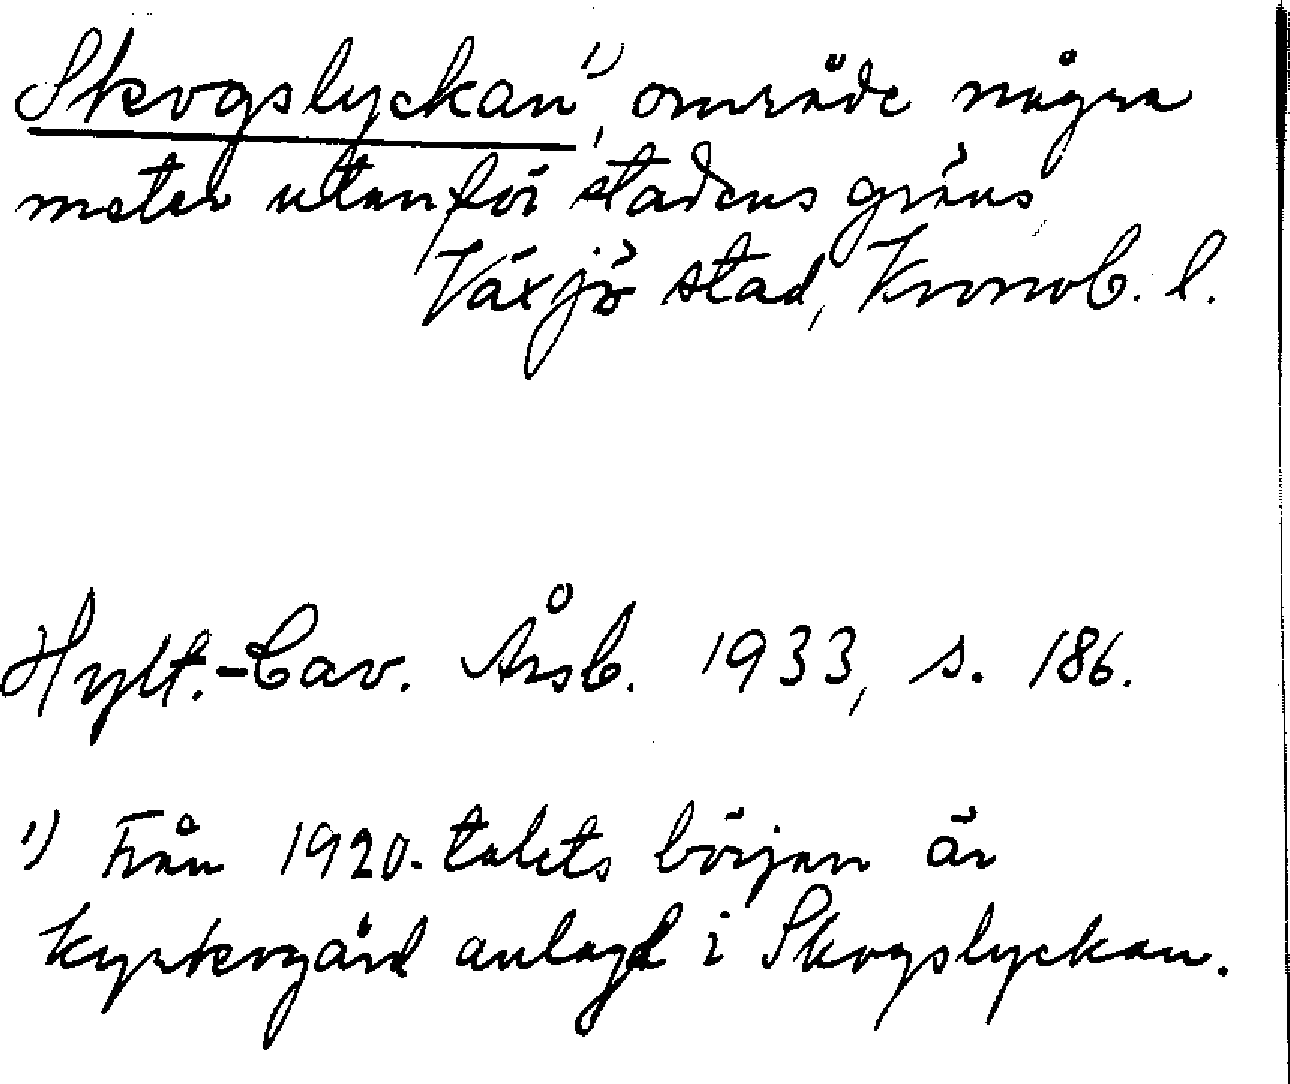 Skogslyckan¹⁾, område några
meter utanför stadens gräns,
Växjö stad, Kronob. l.
Hylt.-Cav. Årsb. 1933, s. 186.
¹⁾ Från 1920-talets början är
kyrkogård anlagd i Skogslyckan.